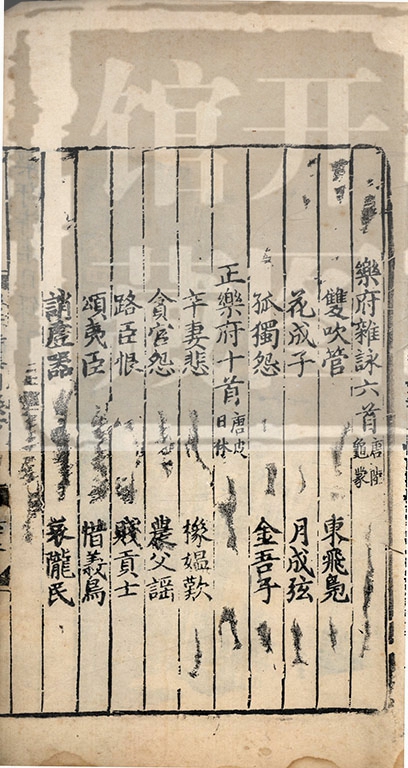 樂府雜詠六首 唐陸龜蒙
雙吹管 東飛鳧
花成子 月成弦
孤獨怨 金吾子
正樂府十首 唐皮日休
卒妻悲 橡媼歎
貪官怨 農父謡
路臣恨 賤貢士
頌夷臣 惜義鳥
誚虛器 哀隴民
馆开